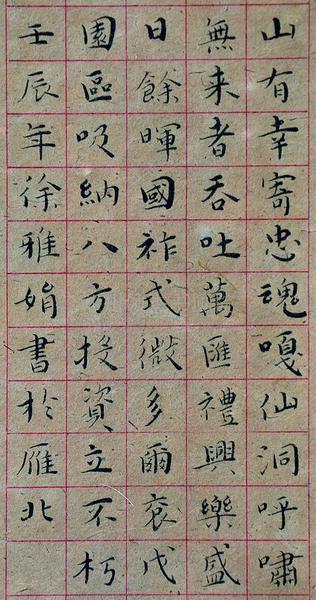 山有幸寄忠魂嘎仙洞呼嘯
無来者吞吐萬匯禮興樂盛
日餘暉國祚式微多爾袞戊
園區吸納八方投資立不朽
壬辰年徐雅娟書於雁北